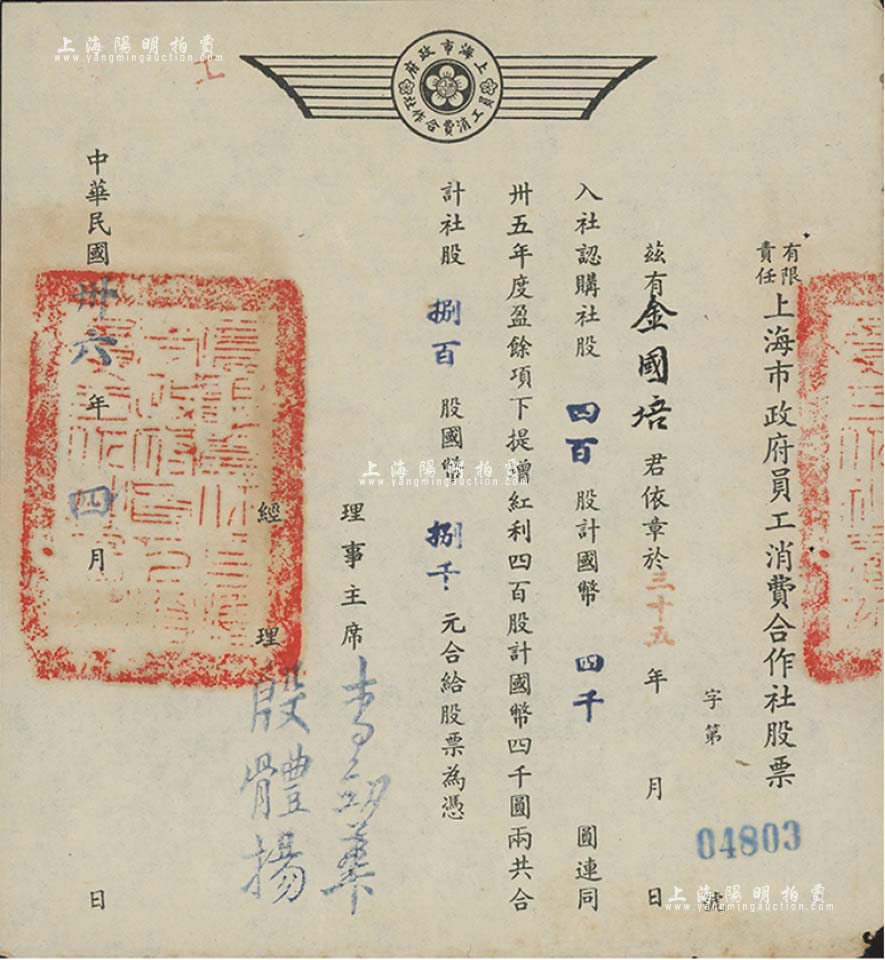 上海市政府
員工消費合作社
有限責任上海市政府員工消費合作社股票
字第04803號
茲有金國培君依章於三十五年 月 日
入社認購社股四百股計國幣四千圓連同
卅五年度盈餘項下提增紅利四百股計國幣四千圓兩共合
計社股捌百股國幣捌千元合給股票為憑
理事主席
經理 殷體揚
中華民國卅六年四月 日
上海陽明拍賣
www.yangmingauction.com
上海陽明拍賣
www.yangmingauction.com
上海陽明拍賣
www.yangmingauction.com